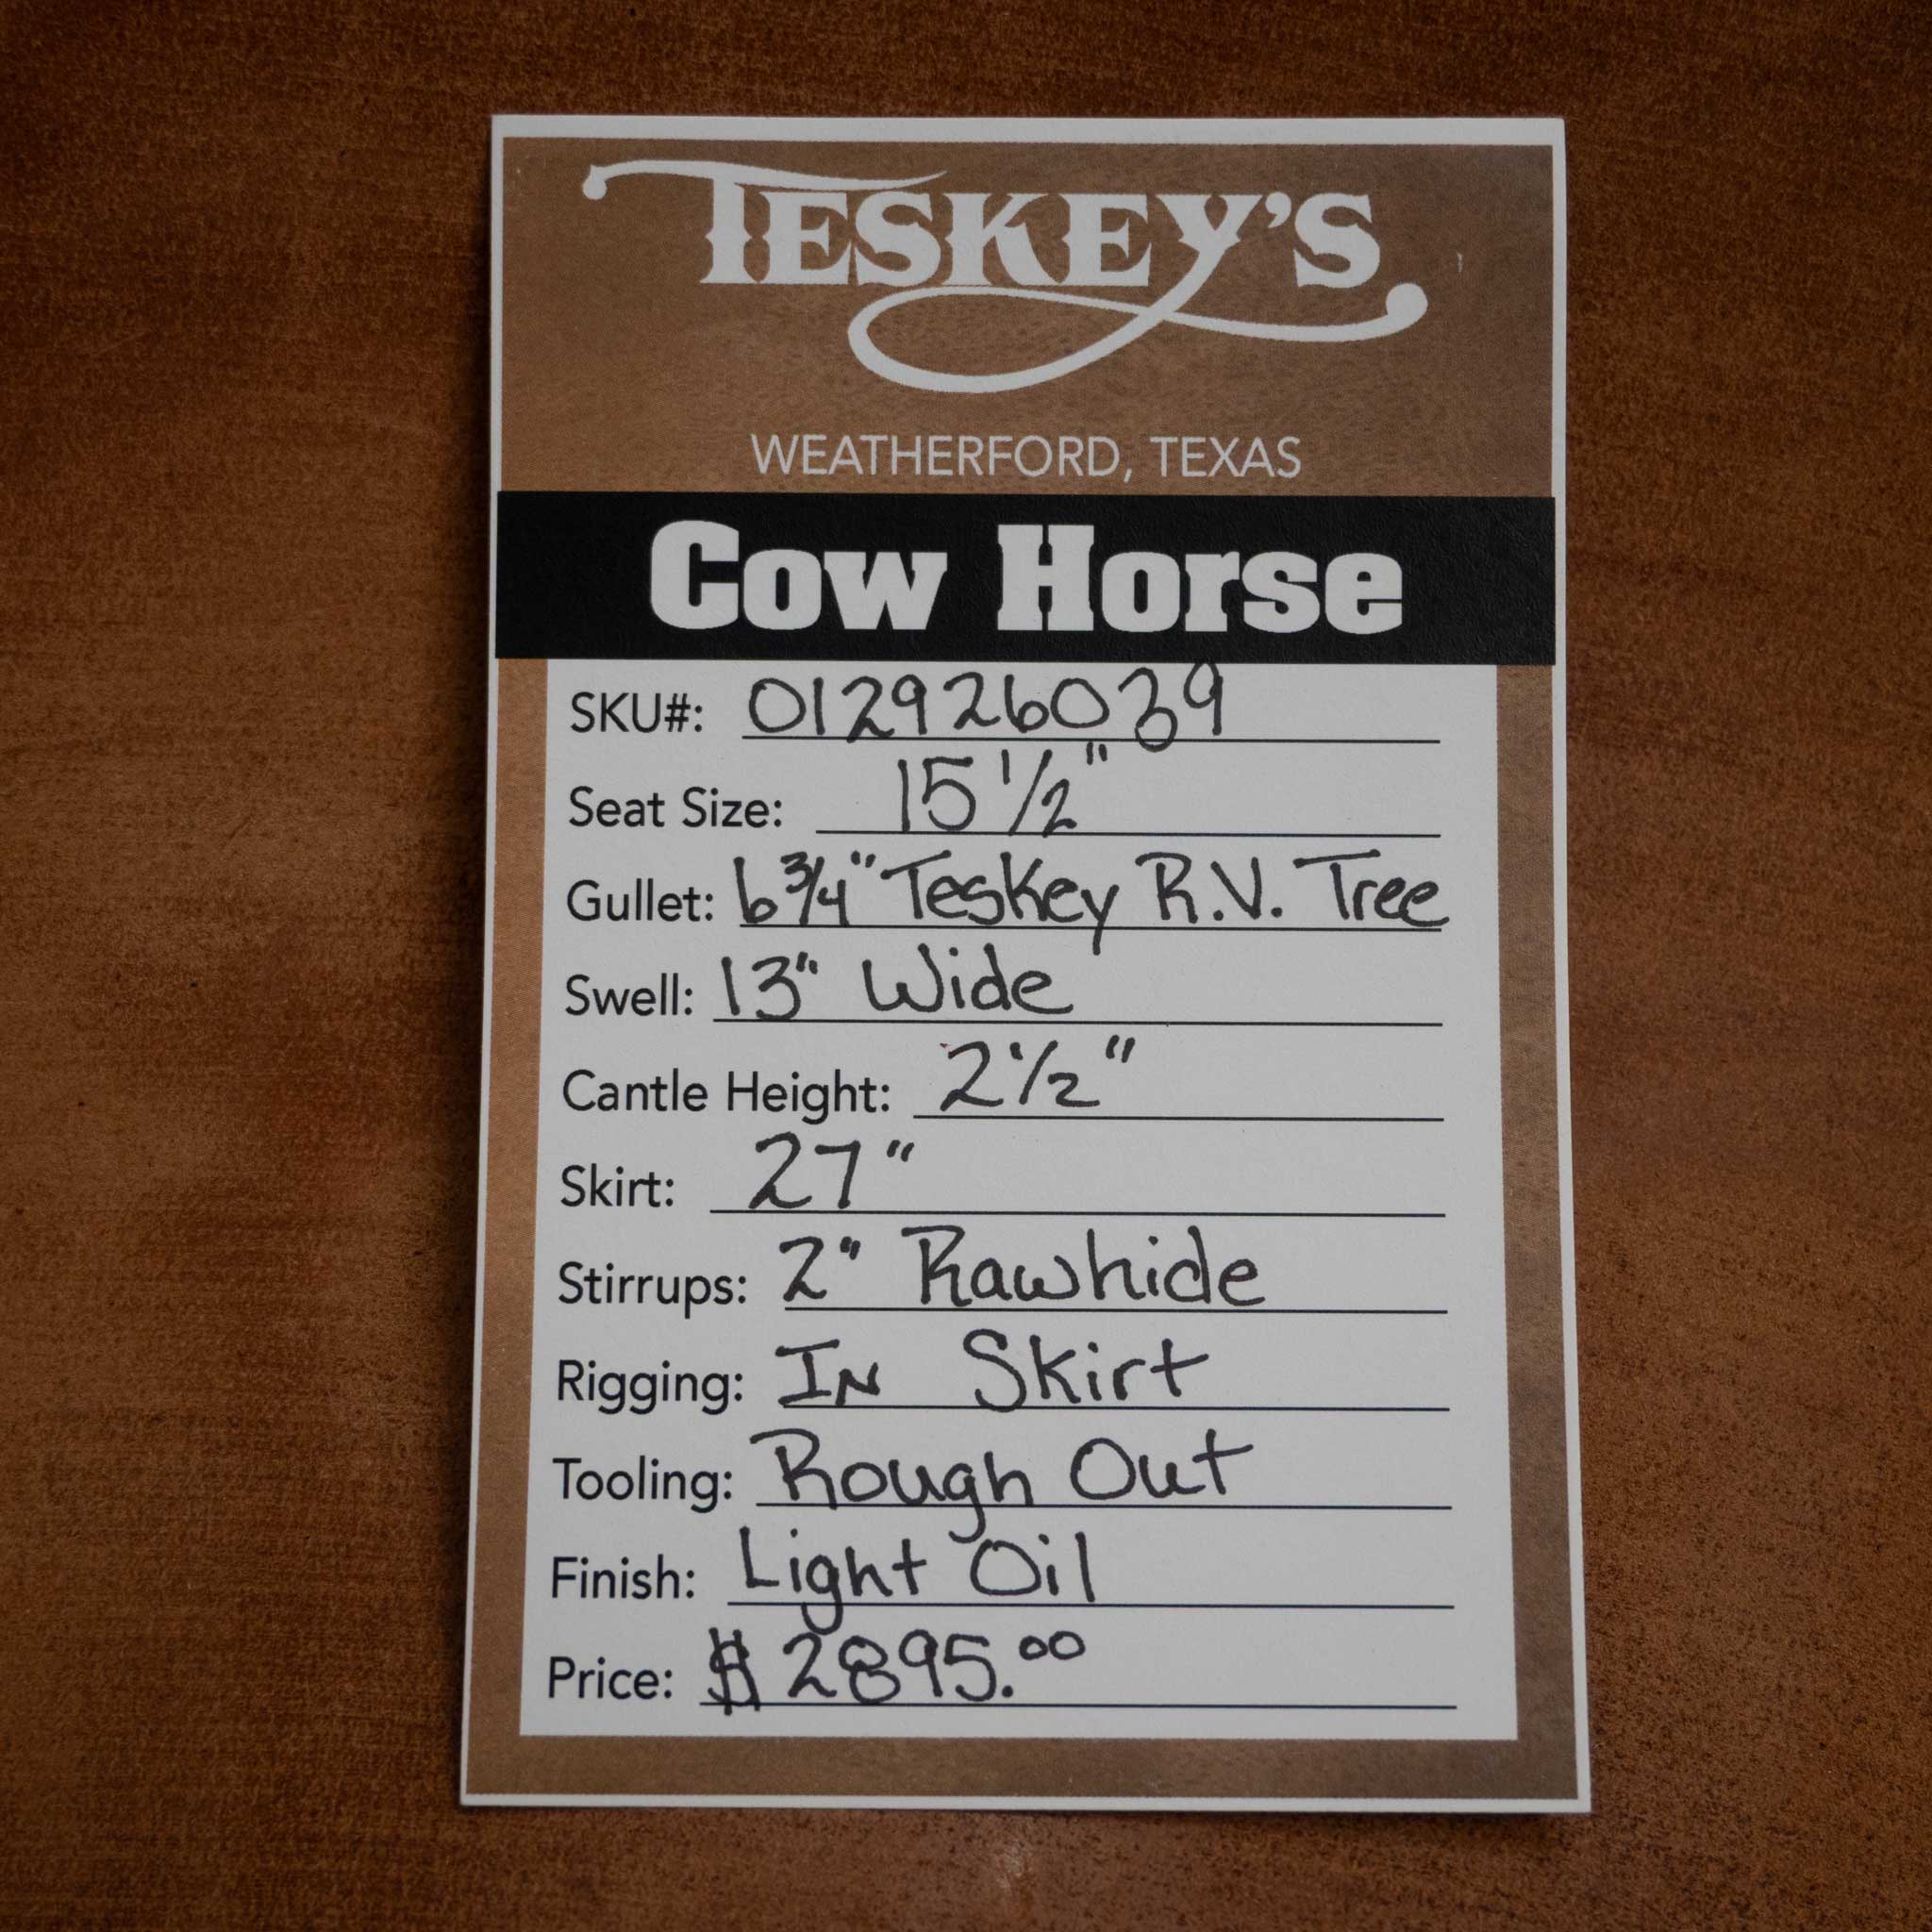 TESKEY'S
WEATHERFORD, TEXAS
Cow Horse
SKU#: 012926039
Seat Size: 15 1/2"
Gullet: 6 3/4" Teskey R.V. Tree
Swell: 13" Wide
Cantle Height: 2 1/2"
Skirt: 27"
Stirrups: 2" Rawhide
Rigging: IN Skirt
Tooling: Rough Out
Finish: Light Oil
Price: $ 2895.00